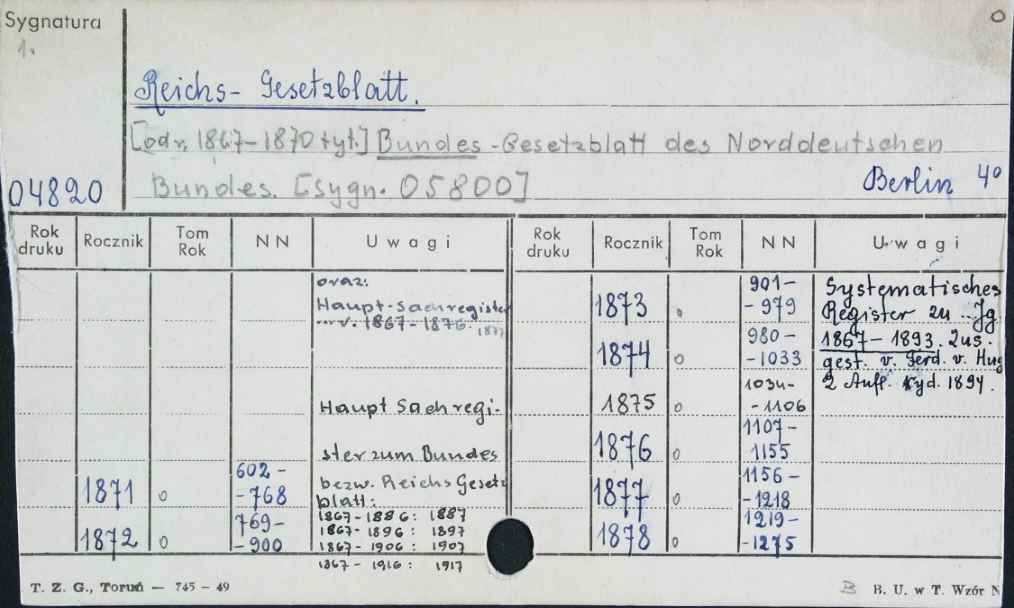 Sygnatura
1.
Reichs- Gesetzblatt.
[odr. 1867-1870 tyt.] Bundes-Gesetzblatt des Norddeutschen
04820 Bundes. [sygn. 05800] Berlin 4°
Rok druku Rocznik Tom Rok NN Uwagi Rok druku Rocznik Tom Rok NN Uwagi
oraz:
Haupt-Sachregister
v. 1867-1876. 1877
Haupt Sachregi-
ster zum Bundes
bezw. Reichs Gesetz
blatt:
1871 o 602-
-768
1867-1886: 1887
1872 o 769-
-900
1867-1896: 1897
1867-1906: 1907
1867-1916: 1917
1873 o 901-
-979
1874 o 980-
-1033
1875 o 1034-
-1106
1876 o 1107-
1155
1877 o 1156-
-1218
1878 o 1219-
-1275
Systematisches
Register zu .. Jg
1867-1893. Zus.
gest. v. Ferd. v. Hug
2 Aufl. Wyd. 1894.
T. Z. G., Toruń — 745 - 49
B B. U. w T. Wzór N